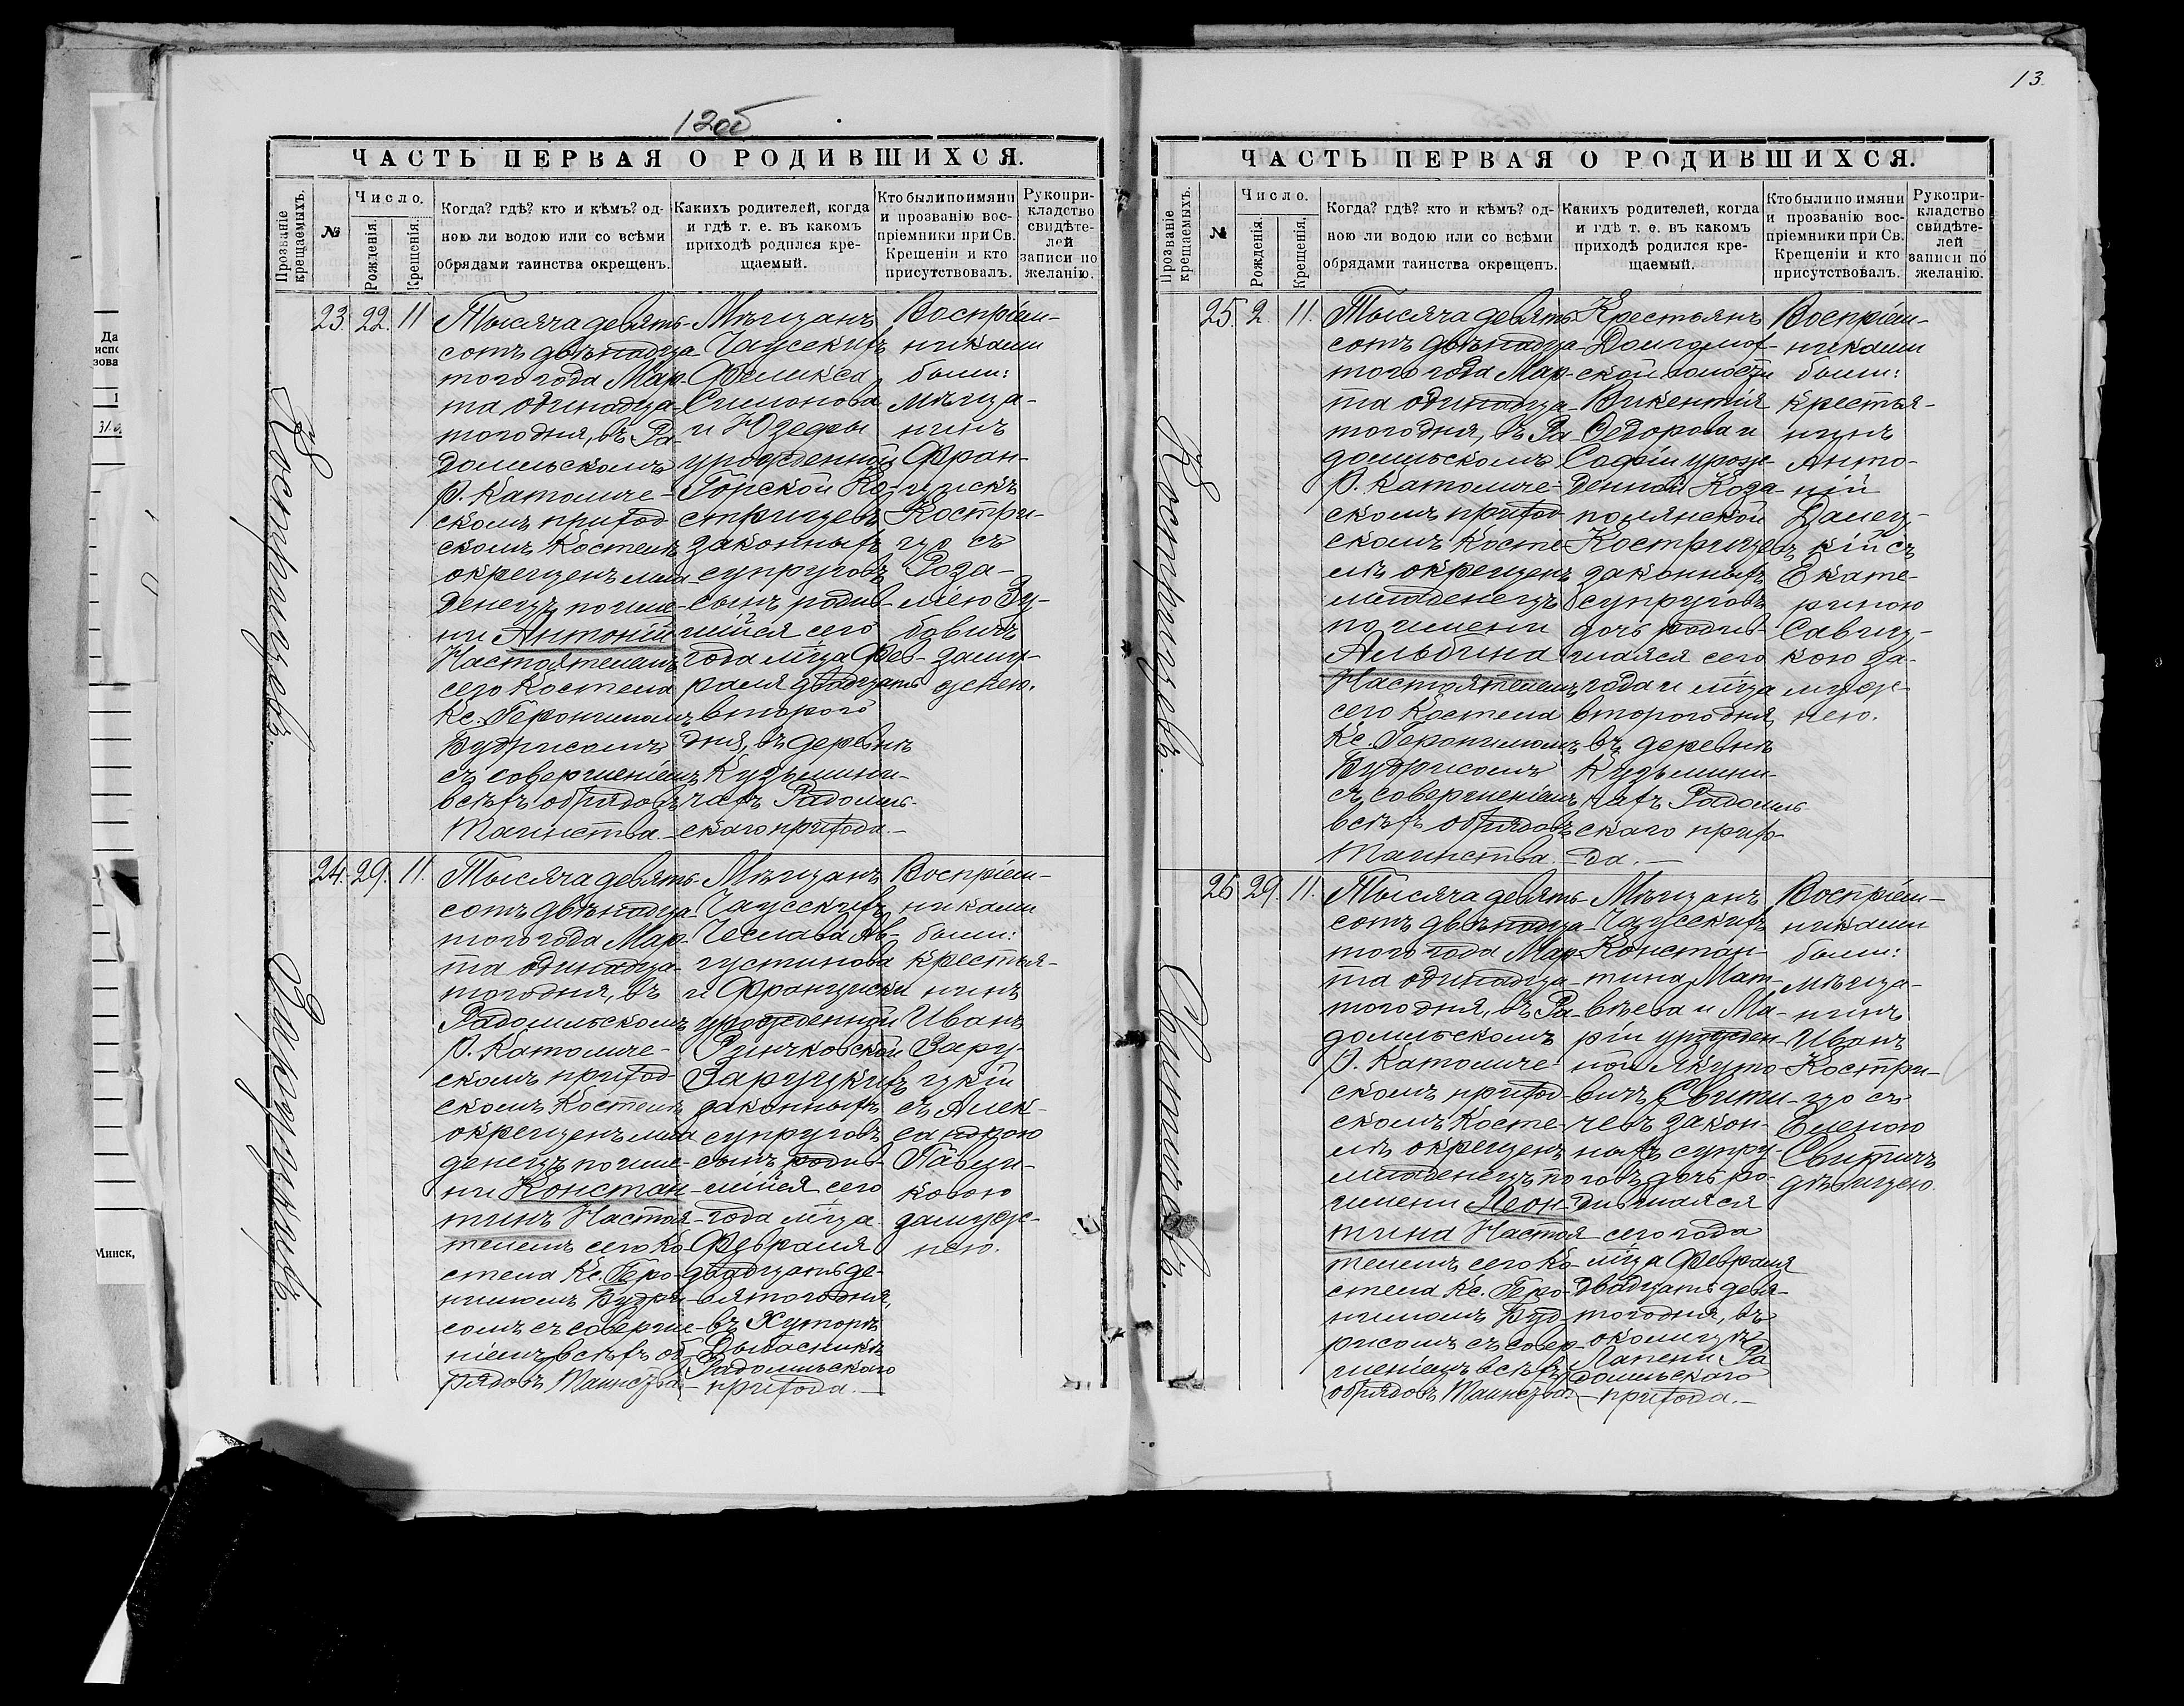 12об
ЧАСТЬ ПЕРВАЯ О РОДИВШИХСЯ.
Прозваніе крещаемыхъ.
№
Число.
Рожденія.
Крещенія.
Когда? гдѣ? кто и кѣмъ? од-
ною ли водою или со всѣми
обрядами таинства окрещенъ.
Какихъ родителей, когда
и гдѣ т. е. въ какомъ
приходѣ родился кре-
щаемый.
Кто были по имяни
и прозванію вос-
пріемники при Св.
Крещеніи и кто
присутствовалъ.
Рукопри-
кладство
свидѣте-
лей
записи по
желанію.
Кострицевъ.
23. 22. 11
Тысяча девять-
сотъ двѣнадца-
того года Мар-
та одинадца-
того дня, въ Ра-
домльскомъ
Р. Католиче-
скомъ приход-
скомъ Костелѣ
окрещенъ мла-
денецъ по име-
ни Антоній
Настоятелемъ
сего Костела
Кс. Геронимомъ
Будрисомъ
съ совершеніемъ
всѣхъ обрядовъ
Таинства.
Мѣщанъ
Чаусскихъ
Феликса
Симонова
и Юзефы
урожденной
Горской Ко-
стрицевъ
законныхъ
супруговъ
сынъ родив-
шійся сего
года м-ца Фев-
раля двадцать
второго
дня, въ деревнѣ
Кузьмини-
чахъ Радомль-
скаго прихода.
Воспріем-
никами
были:
мѣща-
нинъ
Фран-
цискъ
Костри-
цо съ
Роза-
ліею Зу-
бовичъ
заму-
жнею.
Заруцкихъ.
24. 29. 11.
Тысяча девять-
сотъ двѣнадца-
того года Мар-
та одинадца-
того дня, въ
Радомльскомъ
Р. Католиче-
скомъ приход-
скомъ Костелѣ
окрещенъ мла-
денецъ по име-
ни Констан-
тинъ Настоя-
телемъ сего Ко-
стела Кс. Геро-
нимомъ Будри-
сомъ съ соверше-
ніемъ всѣхъ об-
рядовъ Таинства.
Мѣщанъ
Чаусскихъ
Чеслава Ав-
густинова
и Францишки
урожденной
Ринчковской
Заруцкихъ
законныхъ
супруговъ
сынъ родив-
шійся сего
года м-ца
Февраля
двадцать де-
вятого дня,
въ Хуторѣ
Радомльскаго
прихода.
Воспріем-
никами
были:
крестья-
нинъ
Иванъ
Зару-
цкій
съ Алек-
сандрою
замуж-
нею.
13.
ЧАСТЬ ПЕРВАЯ О РОДИВШИХСЯ.
Прозваніе крещаемыхъ.
№
Число.
Рожденія.
Крещенія.
Когда? гдѣ? кто и кѣмъ? од-
ною ли водою или со всѣми
обрядами таинства окрещенъ.
Какихъ родителей, когда
и гдѣ т. е. въ какомъ
приходѣ родился кре-
щаемый.
Кто были по имяни
и прозванію вос-
пріемники при Св.
Крещеніи и кто
присутствовалъ.
Рукопри-
кладство
свидѣте-
лей
записи по
желанію.
Кострицевъ.
25. 2. 11.
Тысяча девять-
сотъ двѣнадца-
того года Мар-
та одинадца-
того дня, въ Ра-
домльскомъ
Р. Католиче-
скомъ приход-
скомъ Косте-
лѣ окрещенъ
младенецъ
по имени
Альбина
Настоятелемъ
сего Костела
Кс. Геронимомъ
Будрисомъ
съ совершеніемъ
всѣхъ обрядовъ
Таинства.
Крестьянъ
Долгомох-
ской волости
Викентія
Федорова и
Софіи урож-
денной Коза-
полянской
Кострицевъ
законныхъ
супруговъ
дочь родив-
шаяся сего
года и м-ца
второго дня,
въ деревнѣ
Кузьмини-
чахъ Радомль-
скаго прихо-
да.
Воспріем-
никами
были:
крестья-
нинъ
Анто-
ній
Далец-
кій съ
Екате-
риною
Савиц-
кою за-
муж-
нею.
Свитичевъ.
26 29. 11.
Тысяча девять-
сотъ двѣнадца-
того года Мар-
та одинадца-
того дня, въ Ра-
домльскомъ
Р. Католиче-
скомъ приход-
скомъ Косте-
лѣ окрещенъ
младенецъ по
имени Леон-
тина Настоя-
телемъ сего Ко-
стела Кс. Геро-
нимомъ Буд-
рисомъ съ совер-
шеніемъ всѣхъ
обрядовъ Таинства.
Мѣщанъ
Чаусскихъ
Констан-
тина Мат-
вѣева и Ма-
ріи урожден-
ной Якуто-
вичъ Свити-
чевъ закон-
ныхъ супру-
говъ дочь ро-
дившаяся
сего года
м-ца Февраля
двадцать девя-
того дня, въ
околицѣ
Лапени Ра-
домльскаго
прихода.
Воспріем-
никами
были:
мѣща-
нинъ
Иванъ
Костри-
цо съ
Еленою
Свитичъ
дѣвицею.